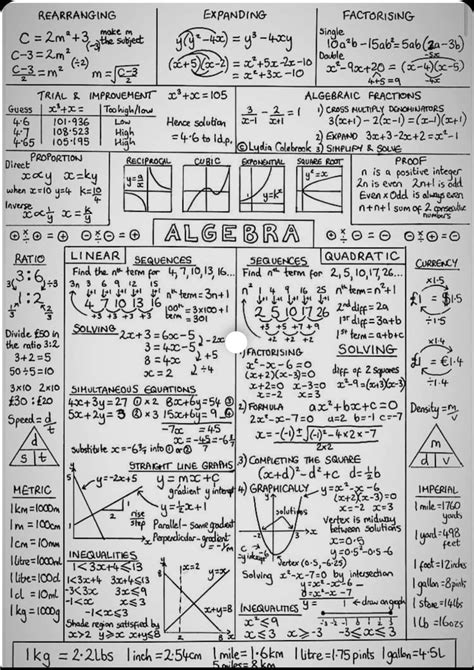 REARRANGING
C = 2m² + 3 make m the subject
C-3 = 2m² (÷2)
C-3/2 = m² m = √(C-3/2)
EXPANDING
y(y²-4x) = y³-4xy
(x+5)(x-2) = x²+5x-2x-10
= x²+3x-10
FACTORISING
Single
10a²b-15ab² = 5ab(2a-3b)
Double
x²-9x+20 = (x-4)(x-5)
4+5=9
TRIAL & IMPROVEMENT x³+x=105
Guess x³+x= Too high/low
4.6 101.936 Low
4.7 108.523 High
4.65 105.195 High
Hence solution
= 4.6 to 1d.p.
ALGEBRAIC FRACTIONS
3/x-1 - 2/x+1 = 1
1) CROSS MULTIPLY DENOMINATORS
3(x+1)-2(x-1) = (x-1)(x+1)
2) EXPAND 3x+3-2x+2 = x²-1
3) SIMPLIFY & SOLVE
© Lydia Colebrook
PROPORTION
Direct
x∝y x=ky
when x=10 y=4 k=10/4
Inverse
x∝1/y x=k/y
RECIPROCAL
y=a/x
CUBIC
EXPONENTIAL
y=kˣ
SQUARE ROOT
y²=x
PROOF
n is a positive integer
2n is even 2n+1 is odd
Even × Odd is always even
n+n+1 sum of 2 consecutive numbers
ALGEBRA
RATIO
3:6
÷3 ÷3
1:2
Divide £50 in
the ratio 3:2
3+2=5
50÷5=10
3×10 2×10
£30 : £20
Speed = d/t
d
s t
METRIC
1km = 1000m
1m = 100cm
1cm = 10mm
1litre = 1000ml
1litre = 100cl
1cl = 10ml
1kg = 1000g
LINEAR
SEQUENCES
Find the nᵗʰ term for 4,7,10,13,16...
3n 3 6 9 12 15
+1 +1 +1 +1 +1
4 7 10 13 16
+3 +3 +3 +3
nᵗʰ term = 3n+1
100ᵗʰ term = 3×100+1
301
SOLVING
2x+3 = 6x-5
3 = 4x-5
8 = 4x
x = 2
-2x
+5
÷4
SIMULTANEOUS EQUATIONS
4x+3y=27 ① ×2 8x+6y=54 ③
5x+2y=3 ② ×3 15x+6y=9
-7x = 45
x = -45/7 = -6 3/7
substitute x=-6 3/7 into ① or ②
STRAIGHT LINE GRAPHS
y=-2x+5
y=mx+c
gradient y intercept
rise
step
Parallel - same gradient
Perpendicular - gradient
INEQUALITIES
-1<3x+4≤13
-1<3x+4 3x+4≤13
Shade region satisfied by
x>2 y>x x+y<8
y=x
x+y=8
QUADRATIC
SEQUENCES
Find the nᵗʰ term for 2,5,10,17,26...
n² 1 4 9 16 25
+1 +1 +1 +1 +1
2 5 10 17 26
+3 +5 +7 +9
nᵗʰ term = n²+1
2nd diff = 2a
1st diff = 3a+b
1st term = a+b+c
SOLVING
1) FACTORISING
x²-x-6=0
(x+2)(x-3)=0
x+2=0 x-3=0
x=-2 x=3
diff of 2 squares
x²-9=(x+3)(x-3)
2) FORMULA ax²+bx+c=0
2x²-x-7=0 a=2 b=-1 c=-7
3) COMPLETING THE SQUARE
(x+d)²-d²+c d=½b
4) GRAPHICALLY
solutions
y=x²-x-6
(x+2)(x-3)=0
x=-2 x=3
Vertex is midway
between solutions
x=0.5
y=0.5²-0.5-6
Vertex (0.5,-6.25)
c = y-intercept
Solving x²-x-7=0 by intersection
INEQUALITIES
draw graph
CURRENCY
×1.5
£1 = $1.5
÷1.5
×1.4
£1 = €1.4
÷1.4
Density = m/v
m
d v
IMPERIAL
1 mile = 1760 yards
1 foot = 12 inches
1 gallon = 8 pints
1 stone = 14lbs
1lb = 16oz
1kg = 2.2lbs 1 inch = 2.54cm 1 mile = 1.6km 1 litre = 1.75 pints 1 gallon = 4.5L
5 miles = 8 km